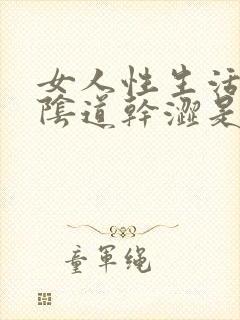 女人性生活
陰道幹澀是
童軍绳